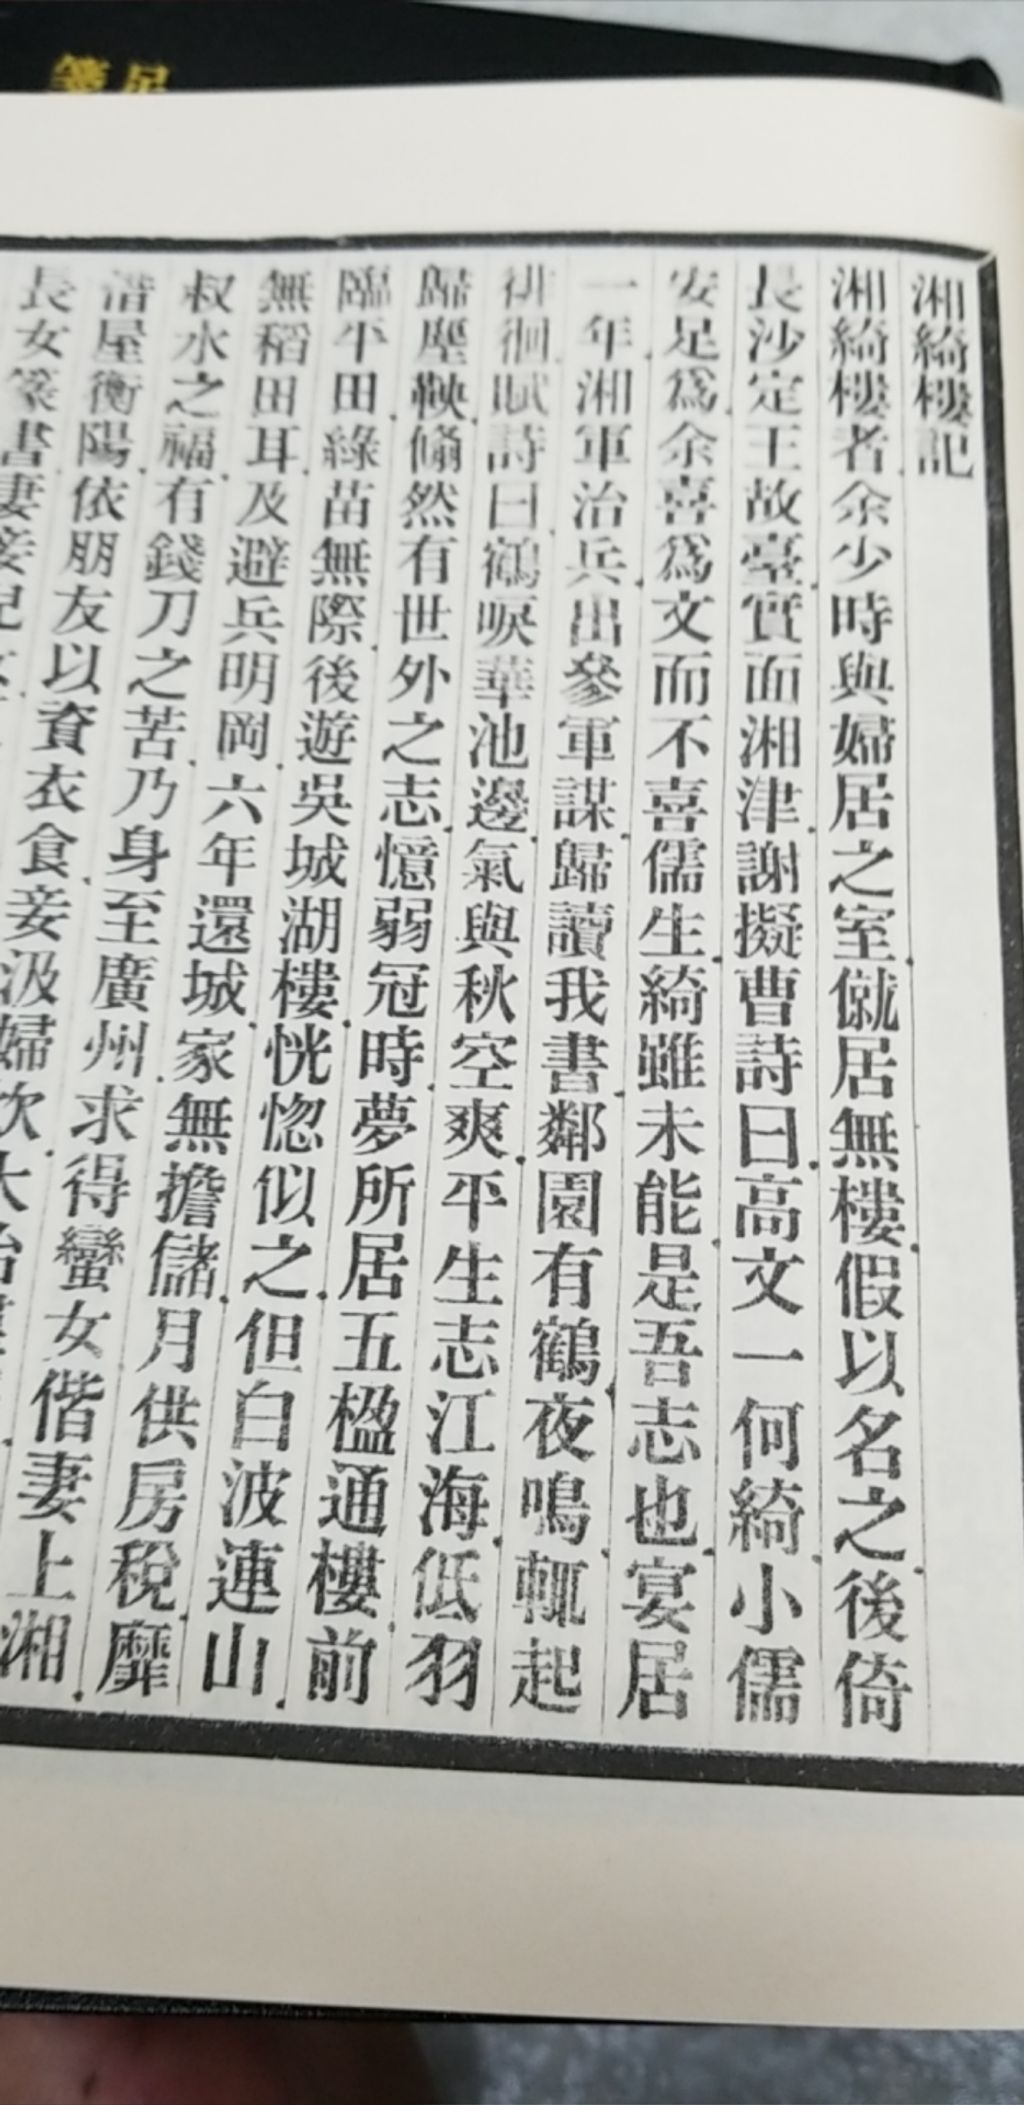 湘綺樓記
湘綺樓者余少時與婦居之室僦居無樓假以名之後倚
長沙定王故臺實面湘津謝擬曹詩曰高文一何綺小儒
安足爲余喜爲文而不喜儒生綺雖未能是吾志也宴居
一年湘軍治兵出參軍謀歸讀我書鄰園有鶴夜鳴輒起
徘徊賦詩曰鶴唳華池邊氣與秋空爽平生志江海低羽
歸塵鞅翛然有世外之志憶弱冠時夢所居五楹通樓前
臨平田綠苗無際後遊吳城湖樓恍惚似之但白波連山
無稻田耳及避兵明岡六年還城家無擔儲月供房稅靡
叔水之福有錢刀之苦乃身至廣州求得蠻女偕妻上湘
僭屋衡陽依朋友以資衣食妾汲婦炊大
長女篆書妻